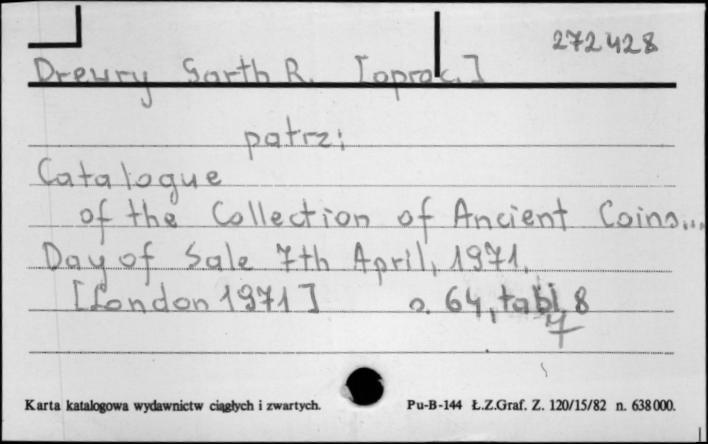 272428
Drewry Garth R. [oprac.]
patrz:
Catalogue
of the Collection of Ancient Coins...
Day of Sale 7th April, 1971.
[London 1971] s. 64, tabl. 8
Karta katalogowa wydawnictw ciągłych i zwartych. Pu-B-144 Ł.Z.Graf. Z. 120/15/82 n. 638000.